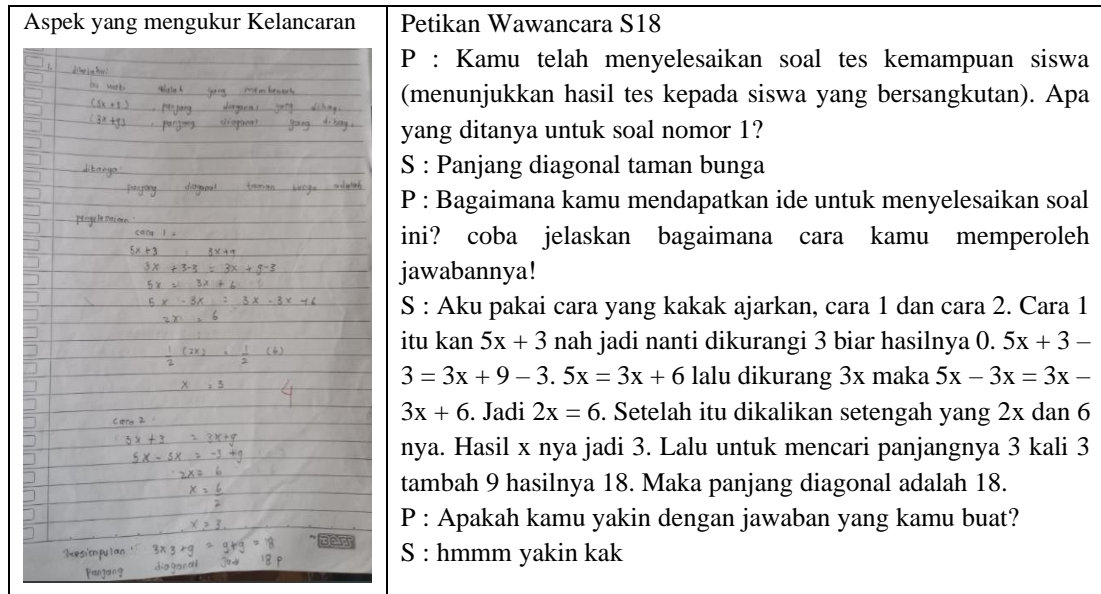 Aspek yang mengukur Kelancaran
1. diketahui
(5x + 3) , panjang diagonal yang dibagi
(3x + 9) , panjang diagonal yang dibagi
ditanya :
panjang diagonal taman bunga adalah
penyelesaian :
cara 1 :
5x + 3 : 3x + 9
5x + 3 - 3 = 3x + 9 - 3
5x = 3x + 6
5x - 3x = 3x - 3x + 6
2x = 6
1/2 (2x) = 1/2 (6)
x = 3
4
cara 2 :
5x + 3 = 3x + 9
5x - 3x = -3 + 9
2x = 6
x = 6/2
x = 3
Kesimpulan : 3x3 + 9 = 9 + 9 = 18
Panjang diagonal 18 p
Petikan Wawancara S18
P : Kamu telah menyelesaikan soal tes kemampuan siswa
(menunjukkan hasil tes kepada siswa yang bersangkutan). Apa
yang ditanya untuk soal nomor 1?
S : Panjang diagonal taman bunga
P : Bagaimana kamu mendapatkan ide untuk menyelesaikan soal
ini? coba jelaskan bagaimana cara kamu memperoleh
jawabannya!
S : Aku pakai cara yang kakak ajarkan, cara 1 dan cara 2. Cara 1
itu kan 5x + 3 nah jadi nanti dikurangi 3 biar hasilnya 0. 5x + 3 –
3 = 3x + 9 – 3. 5x = 3x + 6 lalu dikurang 3x maka 5x – 3x = 3x –
3x + 6. Jadi 2x = 6. Setelah itu dikalikan setengah yang 2x dan 6
nya. Hasil x nya jadi 3. Lalu untuk mencari panjangnya 3 kali 3
tambah 9 hasilnya 18. Maka panjang diagonal adalah 18.
P : Apakah kamu yakin dengan jawaban yang kamu buat?
S : hmmm yakin kak